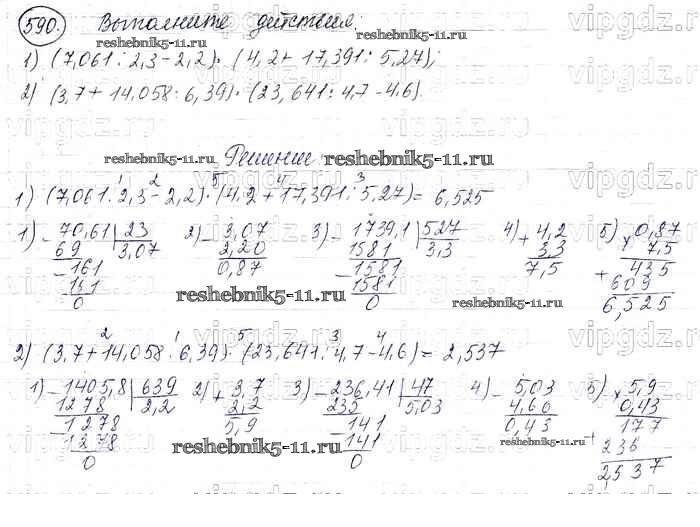 590. Выполните действия:
reshebnik5-11.ru
1) (7,061 : 2,3 - 2,2) · (4,2 + 17,391 : 5,27);
2) (3,7 + 14,058 : 6,39) · (23,641 : 4,7 - 4,6).
Решение:
reshebnik5-11.ru
1 2 5 4 3
1) (7,061 : 2,3 - 2,2) · (4,2 + 17,391 : 5,27) = 6,525
1) - 70,61 | 23 2) - 3,07 3) - 1739,1 | 527 4) + 4,2 5) × 0,87
69 3,07 2,20 1581 3,3 3,3 7,5
- 161 0,87 - 1581 7,5 + 435
161 1581 609
0 0 6,525
reshebnik5-11.ru reshebnik5-11.ru
2 1 5 3 4
2) (3,7 + 14,058 : 6,39) · (23,641 : 4,7 - 4,6) = 2,537
1) - 1405,8 | 639 2) + 3,7 3) - 236,41 | 47 4) - 5,03 5) × 5,9
1278 2,2 2,2 235 5,03 4,60 0,43
- 1278 5,9 - 141 0,43 177
1278 141 + 236
0 0 2,537
reshebnik5-11.ru reshebnik5-11.ru
vipgdz.ru